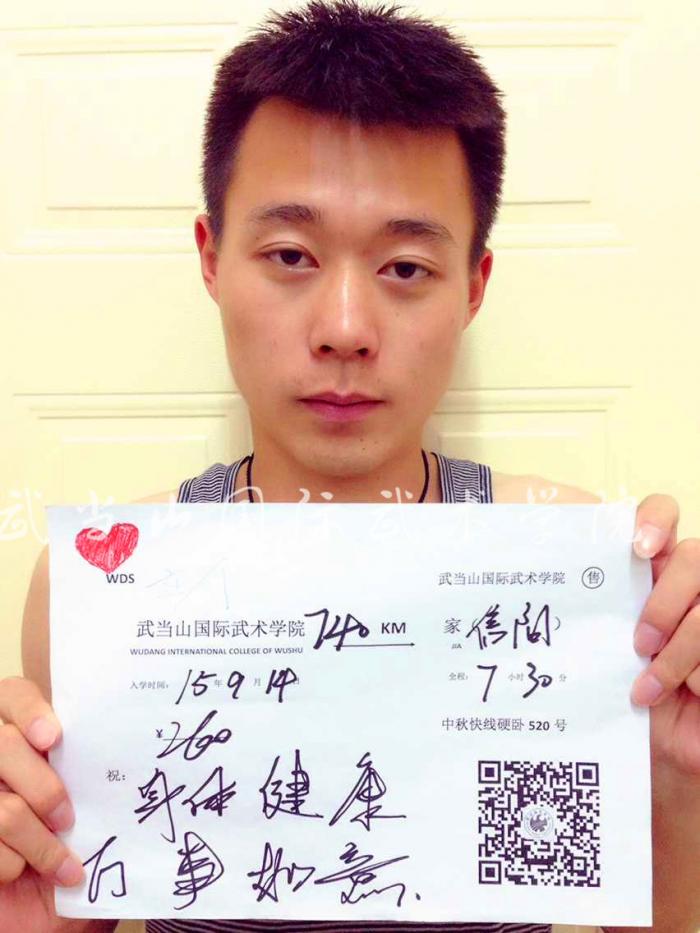 武当山国际武术学院
WDS
武当山国际武术学院 售
武当山国际武术学院 740 KM 家（信阳）
WUDANG INTERNATIONAL COLLEGE OF WUSHU JIA
入学时间： 15 年 9 月 14 日 全程： 7 小时 30 分
¥260 中秋快线硬卧 520 号
祝：
身体健康
万事如意